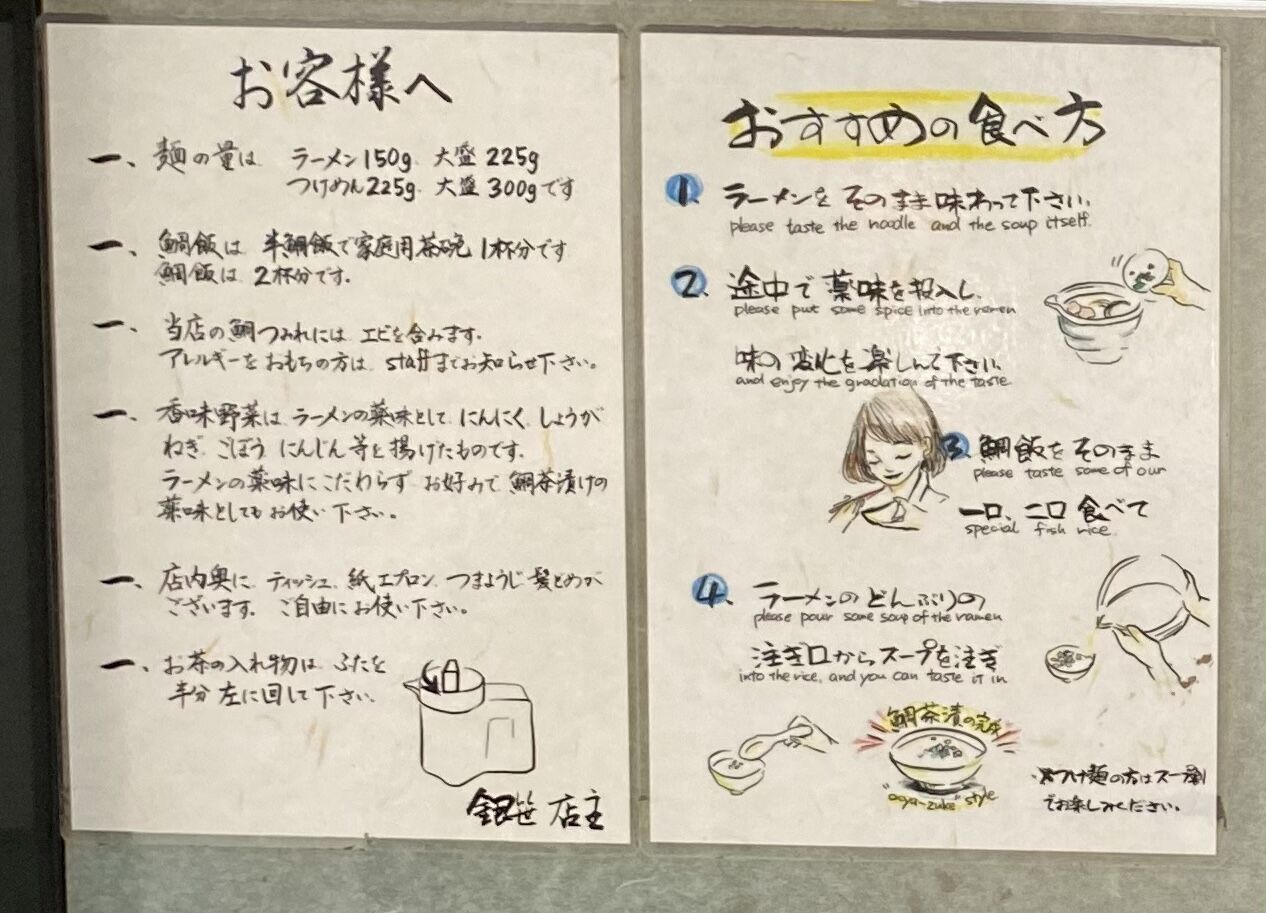 お客様へ
一、麺の量は ラーメン150g. 大盛 225g
つけめん225g. 大盛 300gです
一、鯛飯は 半鯛飯で家庭用茶碗 1杯分です
鯛飯は 2杯分です。
一、当店の鯛つみれには エビを含みます.
アレルギーをおもちの方は staffまでお知らせ下さい。
一、香味野菜は ラーメンの薬味として にんにく しょうが
ねぎ ごぼう にんじん 等を揚げたものです.
ラーメンの薬味にこだわらず お好みで 鯛茶漬けの
薬味としてもお使い下さい。
一、店内奥に ティッシュ 紙エプロン つまようじ 髪どめが
ございます. ご自由にお使い下さい。
一、お茶の入れ物は ふたを
半分 左に回して下さい.
銀笹 店主
おすすめの食べ方
1. ラーメンを そのまま味わって下さい.
please taste the noodle and the soup itself.
2. 途中で 薬味を投入し
please put some spice into the ramen
味の変化を楽しんで下さい
and enjoy the gradation of the taste
3. 鯛飯をそのまま
please taste some of our
一口、二口 食べて
special fish rice.
4. ラーメンのどんぶりの
please pour some soup of the ramen
注ぎ口からスープを注ぎ
into the rice, and you can taste it in
鯛茶漬の完成
"ocya-zuke" style
※つけ麺の方はスープ割
でお楽しみください。